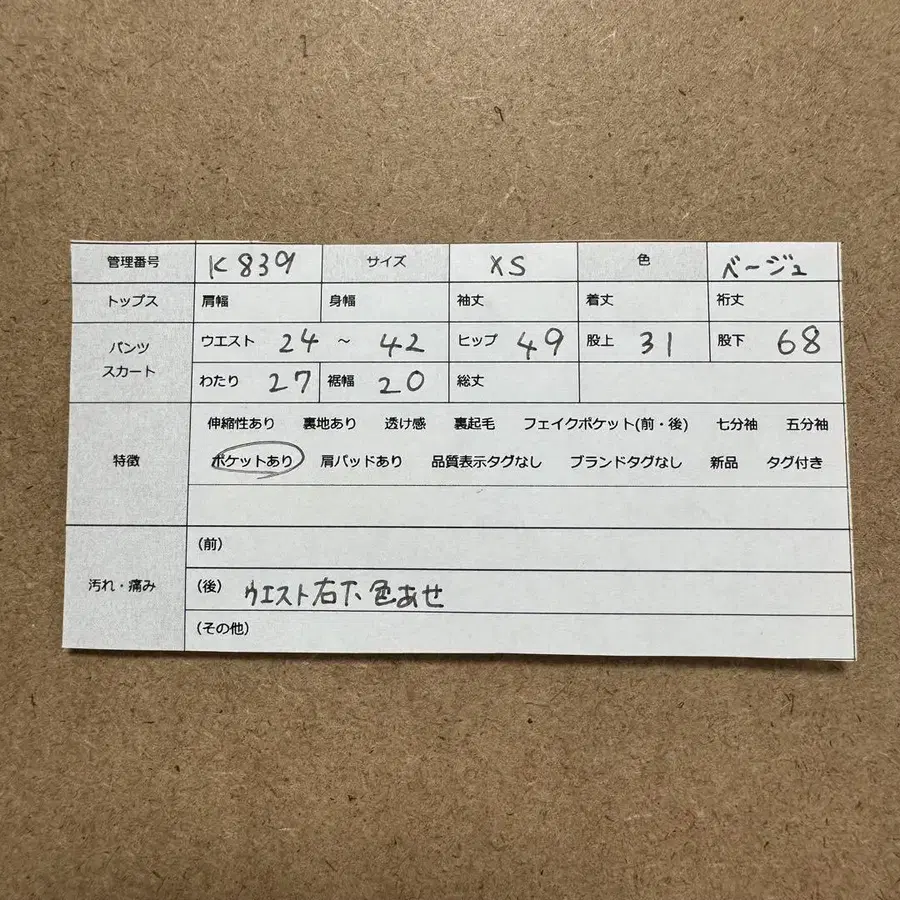 管理番号 K839 サイズ XS 色 ベージュ
トップス 肩幅 身幅 袖丈 着丈 裄丈
パンツ スカート ウエスト 24 ~ 42 ヒップ 49 股上 31 股下 68
わたり 27 裾幅 20 総丈
特徴 伸縮性あり 裏地あり 透け感 裏起毛 フェイクポケット(前・後) 七分袖 五分袖
ポケットあり 肩パッドあり 品質表示タグなし ブランドタグなし 新品 タグ付き
汚れ・痛み (前)
(後) ウエスト右下、色あせ
(その他)